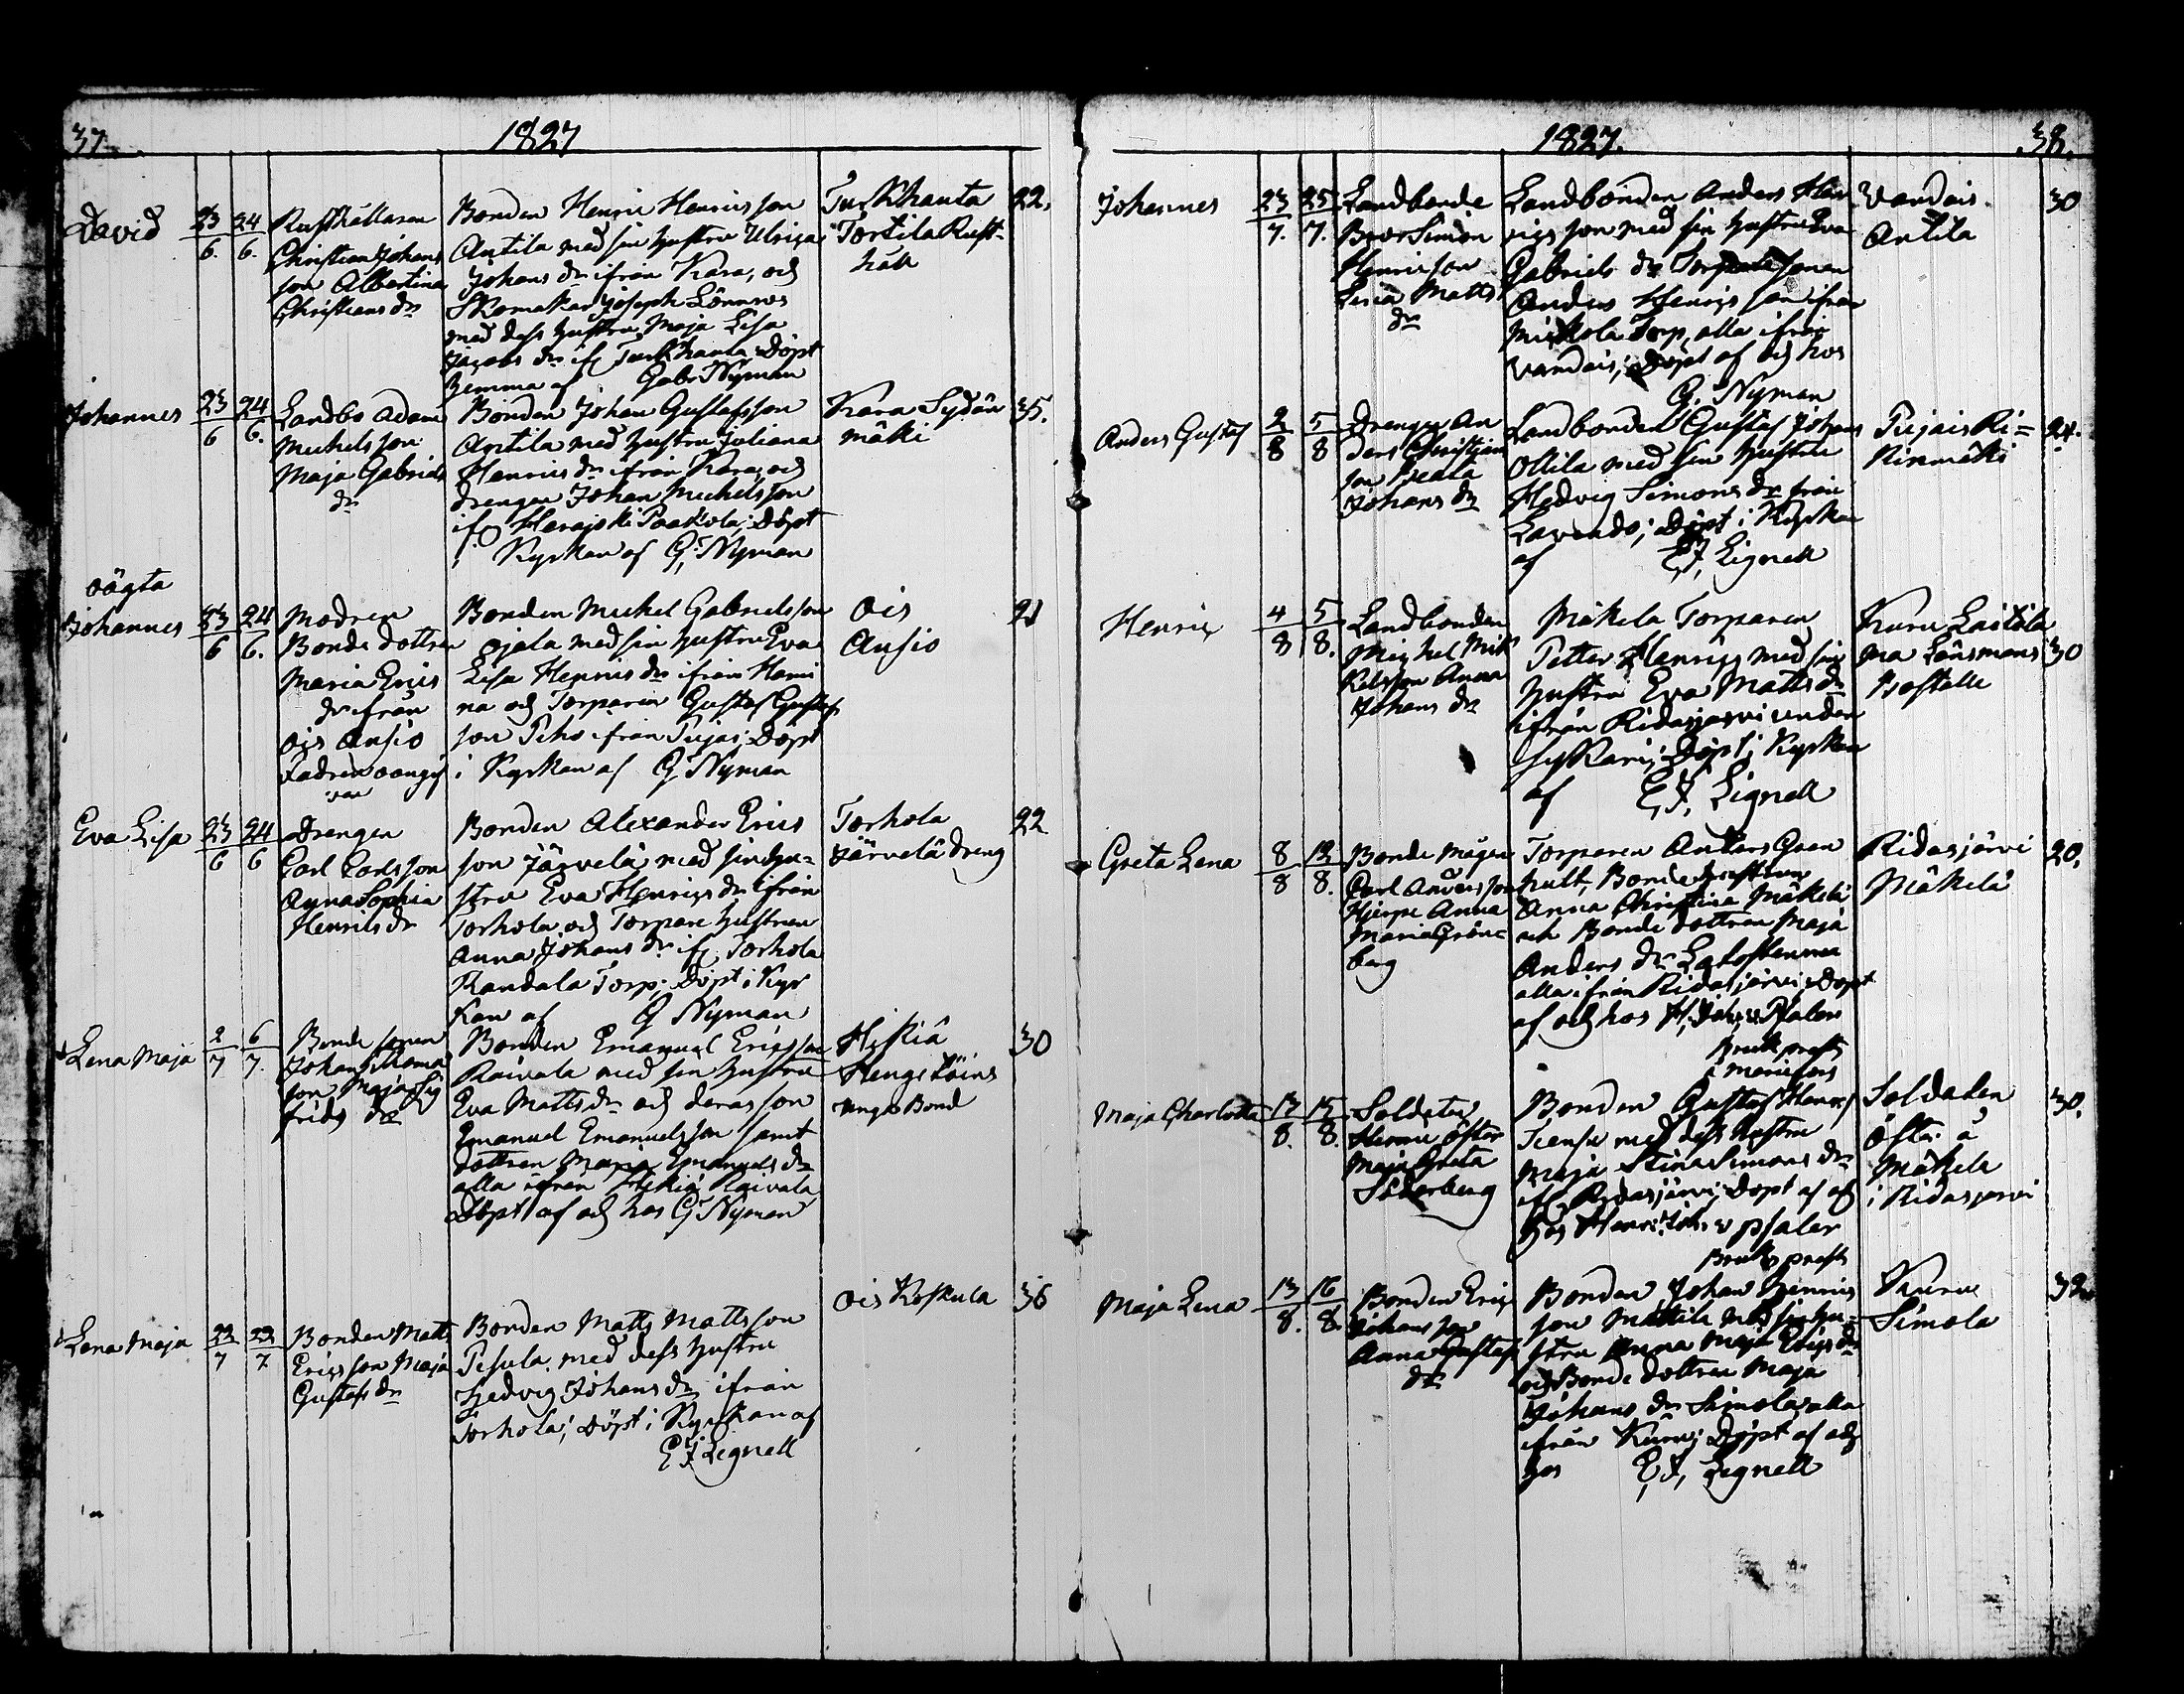 37.
1827
David
23/6.
24/6.
Rusthållaren
Christian Johans
son Albertina
Christians dr
Bonden Henric Henrics son
Antila med sin hustru Ulrica
Johans dr ifrån Kara, och
Skomakar Joseph Lönnros
med dess hustru Maja Lisa
Jacobs dr if Turkhauta Döpt
hemma af Gabr Nyman
Turkhauta
Tortila Rust-
håll
22.
Johannes
23/6
24/6.
Landbo Adam
Michels son
Maja Gabriels
dr
Bonden Johan Gustafsson
Antila med hustru Juliana
Henrics dr ifrån Kara, och
drengen Johan Michels son
if Herajoki Paavola; Döpt
i Kyrkan af G. Nyman
Kara Sydän
mäki
35.
oägta
Johannes
23/6
24/6.
Modren
Bonde dottren
Maria Erics
dr ifrån
Ois Ansio
Fadren oangif
ven
Bonden Michel Gabrielsson
Ojala med sin hustru Eva
Lisa Henrics dr ifrån Hami
na och Torparen Gustaf Gustafs
son Piho ifrån Pujais; Döpt
i Kyrkan af G Nyman
Ois
Ansio
21
Eva Lisa
23/6
24/6
Drengen
Carl Carlsson
Anna Sophia
Henrics dr
Bonden Alexander Erics
son Järvelä med sin hu-
stru Eva Henrics dr ifrån
Torhola och Torpare hustrun
Anna Johans dr if Torhola
Randala Torp; Döpt i Kyr
kan af G Nyman
Torhola
Järvelä dreng
22
Lena Maja
2/7
6/7.
Bonde sonen
Johan Thoma
son Maja Sig
frids dr
Bonden Emanuel Ericsson
Raivala med sin hustru
Eva Matts dr och deras son
Emanuel Emanuelsson samt
dottren Maria Emanuels dr
alla ifrån Hikiä Raivala
Döpt af och hos G Nyman
Hikiä
30
Lena Maja
22/7
23/7
Bonden Matts
Ericsson Maja
Gustafs dr
Bonden Matts Mattsson
Pesula med dess hustru
Hedvig Johans dr ifrån
Torhola; Döpt i Kyrkan af
E J Lignell
Ois Koskula
36
1827.
38.
Johannes
23/7.
25/7.
Landbonde
Bror Simon
Henricson
Lena Matts
dr
Landbonden Anders Hen
rics son med sin hustru Eva
Gabriels dr Torpare sonen
Anders Henrics son ifrån
Mickola Torp, alla ifrån
Vandais; Döpt af och hos
G. Nyman
Vandais
Antila
30
Anders Gustaf
2/8
5/8
Drengen An
ders Christian
son Beata
Johans dr
Landbonden Gustaf Johans
Ollila med sin hustru
Hedvig Simons dr från
Lavondo; Döpt i Kyrkan
af E, J, Lignell
Pujais Ri=
kinmäki
24.
Henric
4/8
5/8.
Landbonden
Michel Mik
kelsson Anna
Johans dr
Mäkelä Torparen
Petter Henrics med sin
hustru Eva Matts dr
ifrån Ridasjärvi under
Döpt i Kyrkan
af E, J, Lignell
Kuru Laitila
ma Länsmans
Bostelle
30
Greta Lena
8/8
12/8.
Bonde mågen
Carl Andersson
Hjerpe Anna
Maria Grön
berg
Torparen Anders Gran
hult, Bonde hustrun
Anna Christina Mäkelä
och Bonde dottren Maja
Anders dr Latostenmaa
alla ifrån Ridasjärvi; Döpt
af och hos H, Joh, v Pfaler
Bruks prest
i Mariefors
Ridasjärvi
Mäkelä
20.
Maja Charlotta
13/8.
15/8.
Soldaten
Henric Öster
Maja Greta
Söderberg
Bonden Gustaf Henrics
med dess hustru
Maja Stina Simons dr
if Ridasjärvi; Döpt af och
hos Henr: Joh v Pfaler
Bruks prest
Soldaten
Öster å
Mäkelä
i Ridasjärvi
30.
Maja Lena
13/8.
16/8.
Bonden Eric
Johans son
Anna Gustafs
dr
Bonden Johan Henrics
son Mattila med sin hu-
stru Anna Maja Erics dr
och Bonde dottren Maja
Johans dr Simola, alla
ifrån Kuru; Döpt af och
hos E, J, Lignell
Kuru
Simola